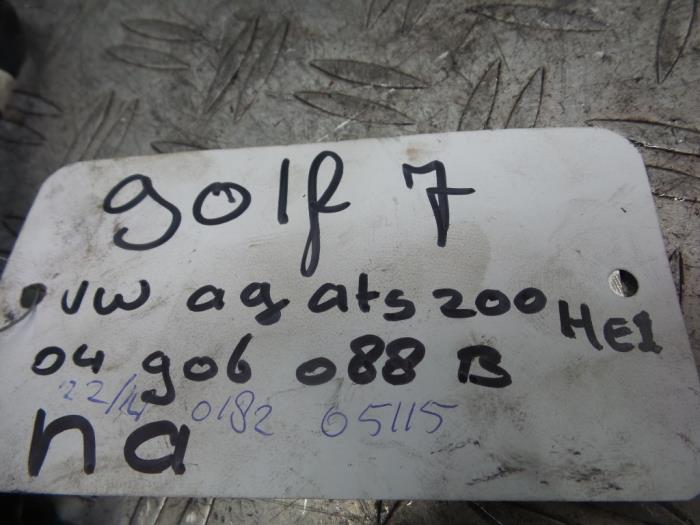 golf 7
vw ag ats 200 HE1
04 906 088 B
0182 05115
na